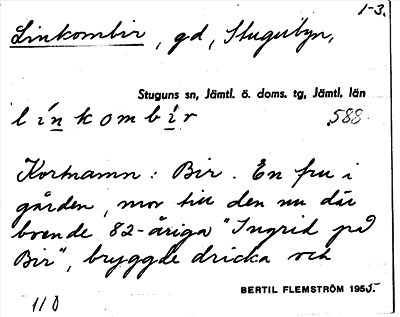 1-3.
Linkombir, gd, Stugubyn,
Stuguns sn, Jämtl. ö. doms. tg, Jämtl. län
línkombír 588
Kortnamn: Bir. En fru i
gården, mor till den nu där
boende 82-åriga "Ingrid på
Bir", bryggde dricka och
BERTIL FLEMSTRÖM 1955.
110